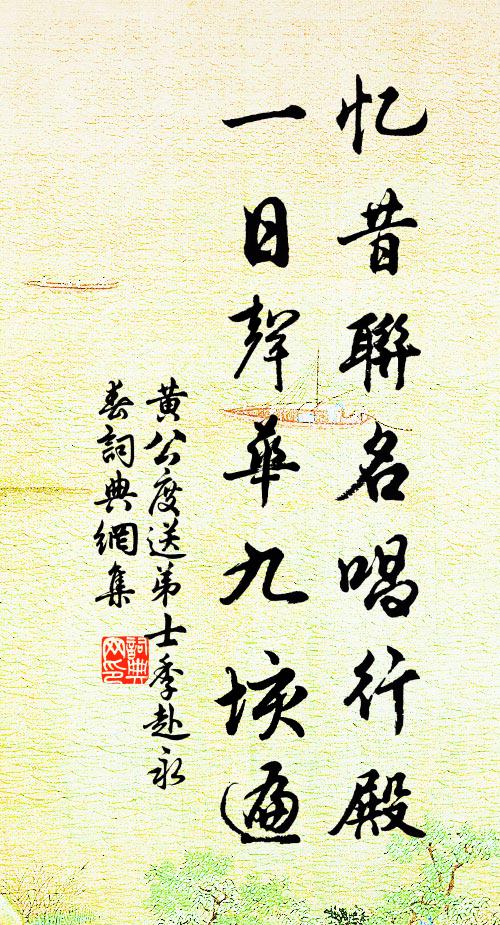 忆昔聯名唱行殿
一日聲華九垓遍
黄公度送弟士季赴永
春詞典網集
詞典网印